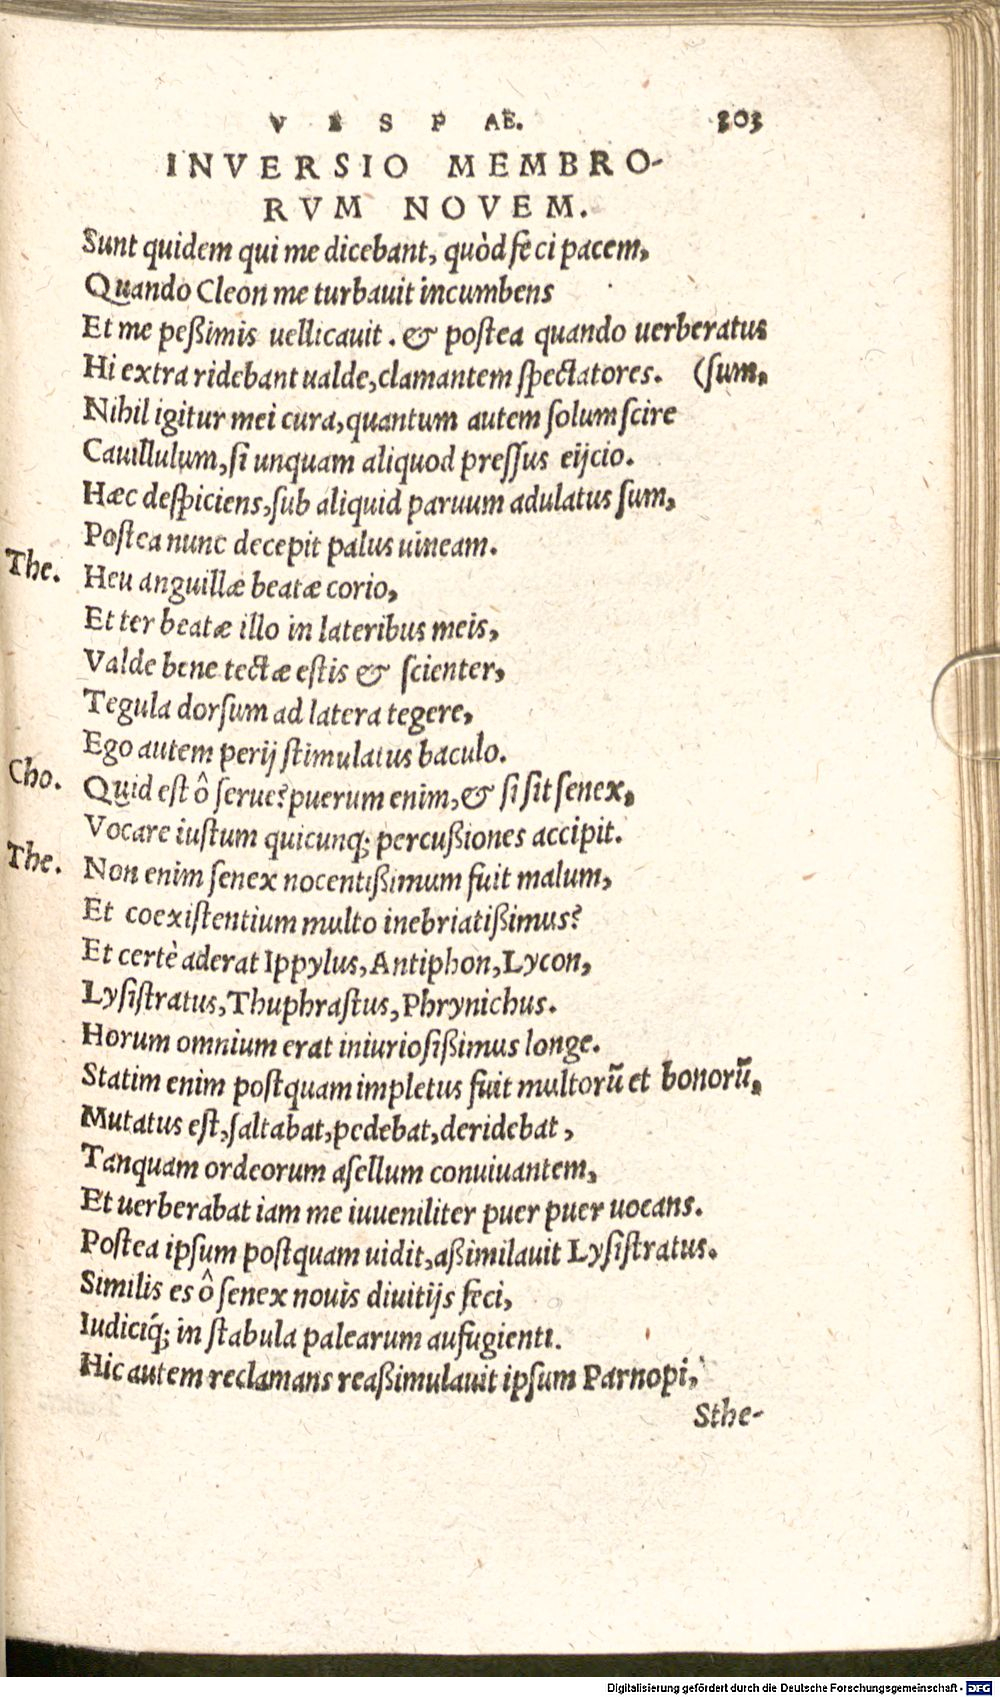 V E S P AE. 303
INVERSIO MEMBRO-
RVM NOVEM.
Sunt quidem qui me dicebant, quòd feci pacem,
Quando Cleon me turbauit incumbens
Et me peßimis uellicauit. & postea quando uerberatus
Hi extra ridebant ualde, clamantem spectatores. (sum,
Nihil igitur mei cura, quantum autem solum scire
Cauillulum, si unquam aliquod pressus eijcio.
Hæc despiciens, sub aliquid paruum adulatus sum,
Postea nunc decepit palus uineam.
The. Heu anguillæ beatæ corio,
Et ter beatæ illo in lateribus meis,
Valde bene tectæ estis & scienter,
Tegula dorsum ad latera tegere,
Ego autem perij stimulatus baculo.
Cho. Quid est ô serue? puerum enim, & si sit senex,
Vocare iustum quicunq; percußiones accipit.
The. Non enim senex nocentißimum fuit malum,
Et coexistentium multo inebriatißimus?
Et certè aderat Ippylus, Antiphon, Lycon,
Lysistratus, Thuphrastus, Phrynichus.
Horum omnium erat iniuriosißimus longe.
Statim enim postquam impletus fuit multorũ et bonorũ,
Mutatus est, saltabat, pedebat, deridebat,
Tanquam ordeorum asellum conuiuantem,
Et uerberabat iam me iuueniliter puer puer uocans.
Postea ipsum postquam uidit, aßimilauit Lysistratus.
Similis es ô senex nouis diuitijs feci,
Iudiciq́; in stabula palearum aufugienti.
Hic autem reclamans reaßimulauit ipsum Parnopi,
Sthe-
Digitalisierung gefördert durch die Deutsche Forschungsgemeinschaft - DFG